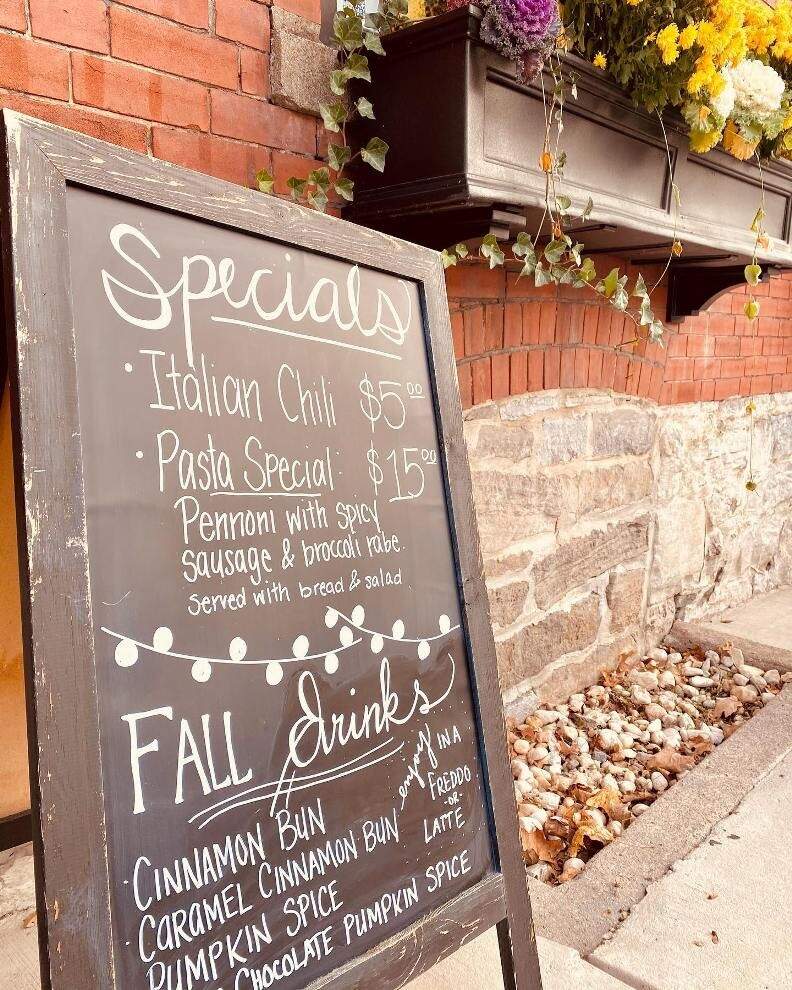 Specials
· Italian Chili $5.00
· Pasta Special: $15.00
Pennoni with spicy
sausage & broccoli rabe.
served with bread & salad
FALL drinks
enjoy IN A
FREDDO
-OR-
LATTE
· CINNAMON BUN
· CARAMEL CINNAMON BUN
· PUMPKIN SPICE
CHOCOLATE PUMPKIN SPICE